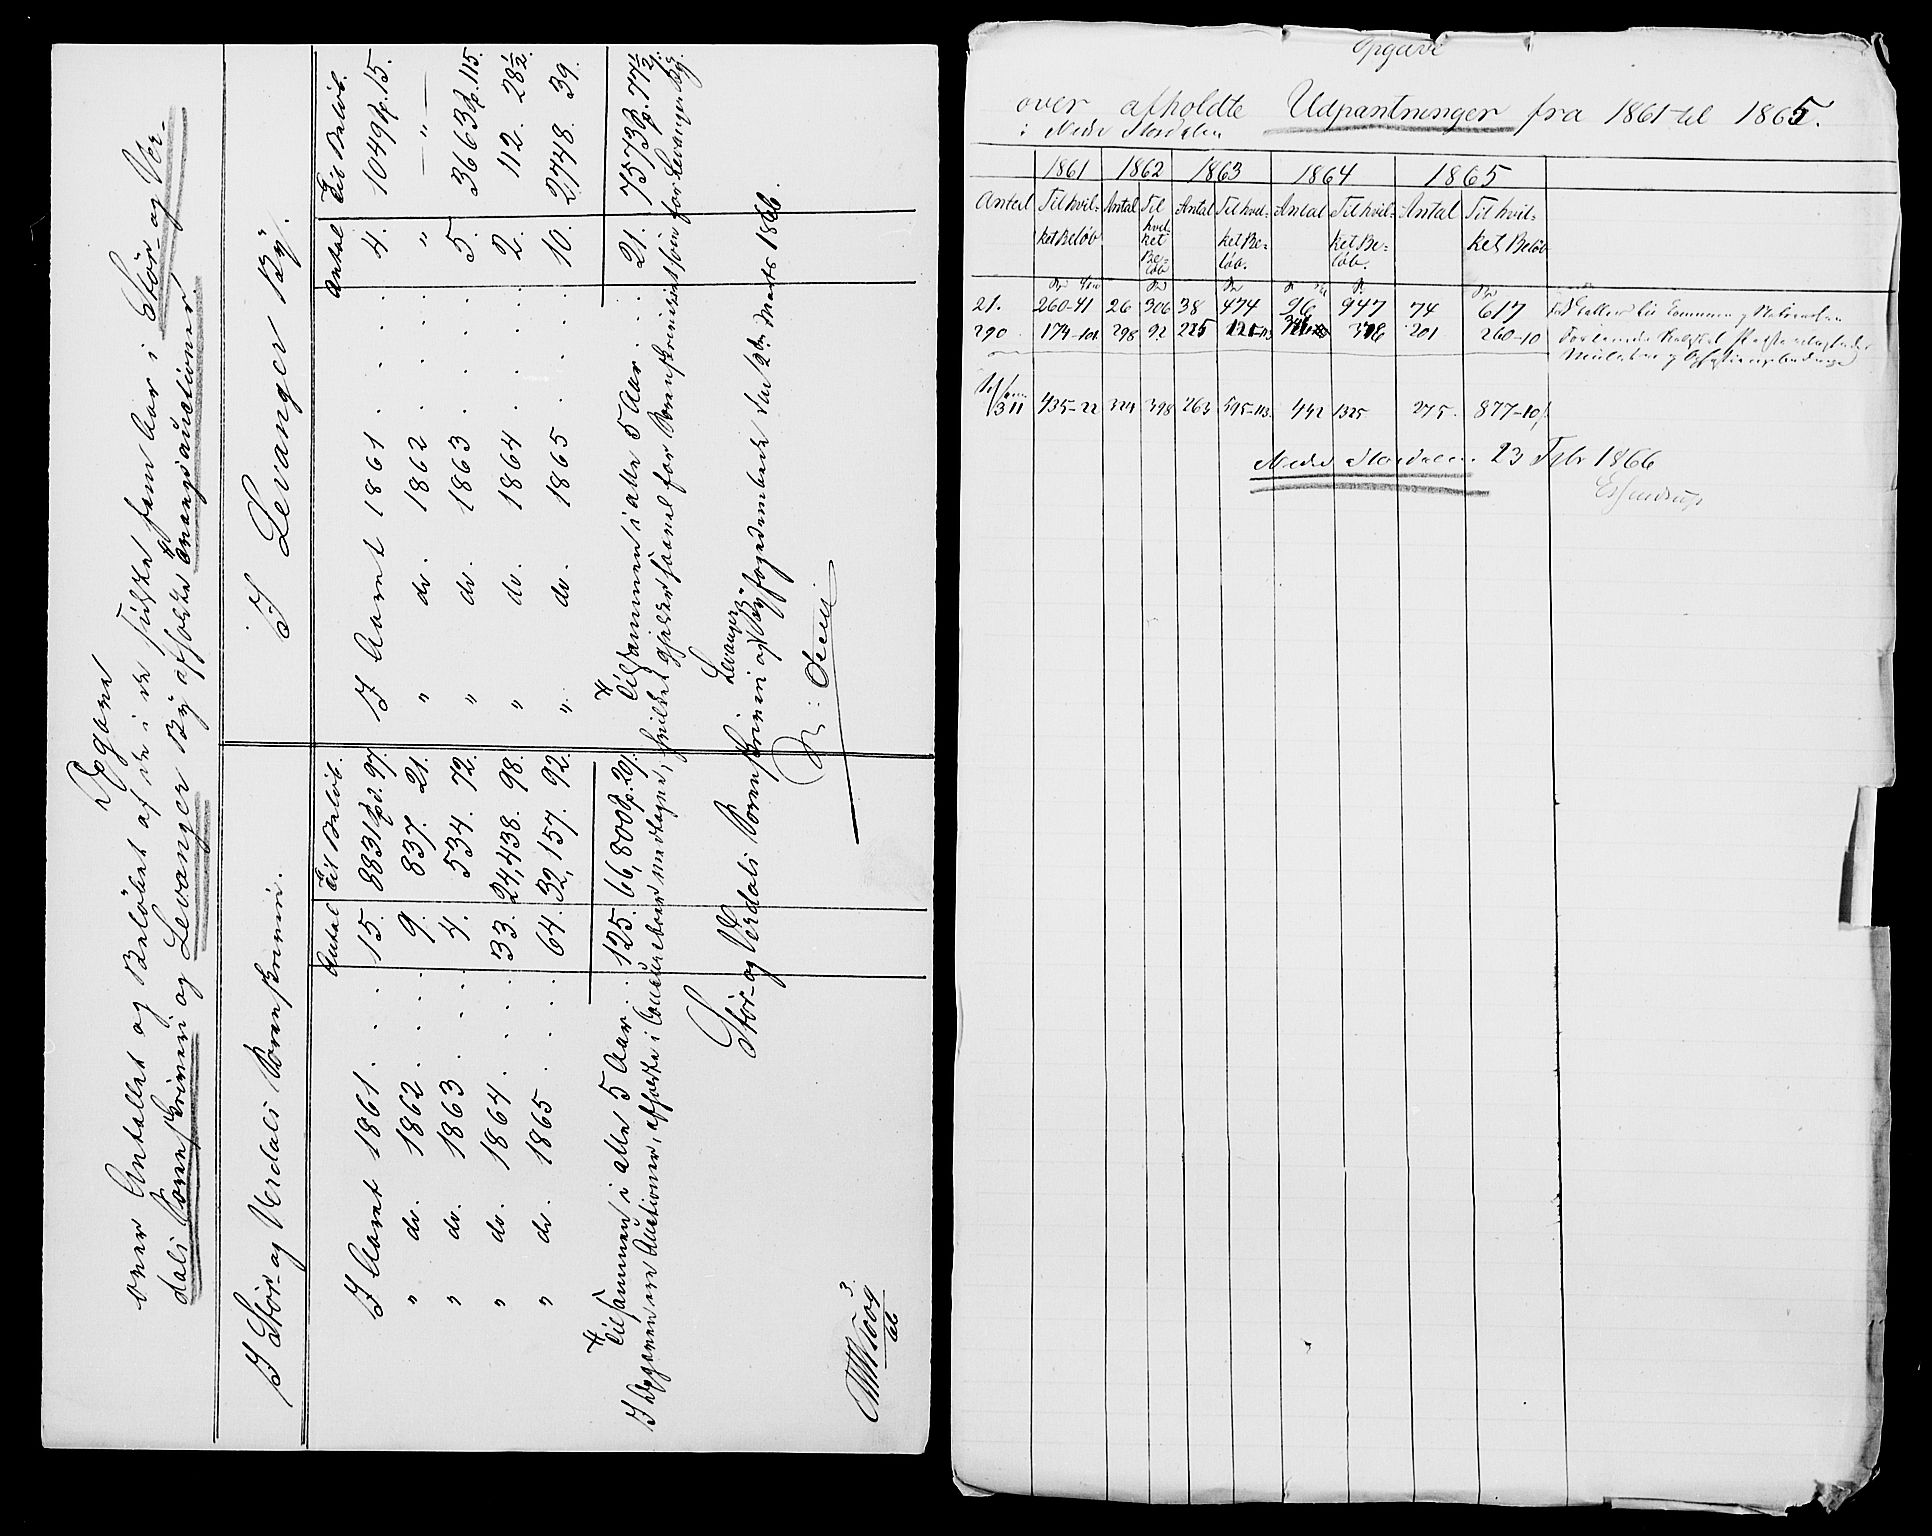 Opgave
over Antallet og Beløbet af de i de sidste fem Aar i Stør- og Ver-
dals Sorenskriveri og Levanger By afholdte Tvangsauctioner.
I Stør- og Verdals Sorenskriveri. I Levanger By.
Antal Til Beløb. Antal Til Beløb.
I Aaret 1861 . . . 15. 8831 Spd. 97. I Aaret 1861 . . . 4. 1049 Sp. 15.
" do. 1862 . . . 9. 837. 21. " do. 1862 . . . " — " —
" do. 1863 . . . 4. 534. 72. " do. 1863 . . . 5. 3663 Sp. 115.
" do. 1864 . . . 33. 24,438. 98. " do. 1864 . . . 2. 112. 28½.
" do. 1865 . . . 64. 32,157. 92. " do. 1865 . . . 10. 2,748. 39.
Tilsammen i alle 5 Aar . . 125. 66,800 Sp. 20. Tilsammen i alle 5 Aar . . . 21. 7573 Sp. 77½.
I Opgaven ere Auctioner, afholdte i Concursboer medtagne, hvilket gjelder saavel for Sorenskriveriet som for Levanger By.
Stør- og Verdals Sorenskriveri og Levanger Byfogedembede den 2den Marts 1866.
3/66

Opgave
over afholdte Udpantninger fra 1861 til 1865.
i Nedre Stordalen
1861 1862 1863 1864 1865
Antal Til hvil- Antal Til Antal Til hvil- Antal Til hvil- Antal Til hvil-
ket Beløb hvil- ket Be- ket Be- ket Beløb
ket løb. løb.
Be-
løb
21. 260-41 26 306 38 474 96 947 74 617
290 174-101 298 92 225 121-113 346 378 201 260-10
311 435-22 324 398 263 595-113 442 1325 275. 877-10
Nedre Stordalen 23 Febr 1866